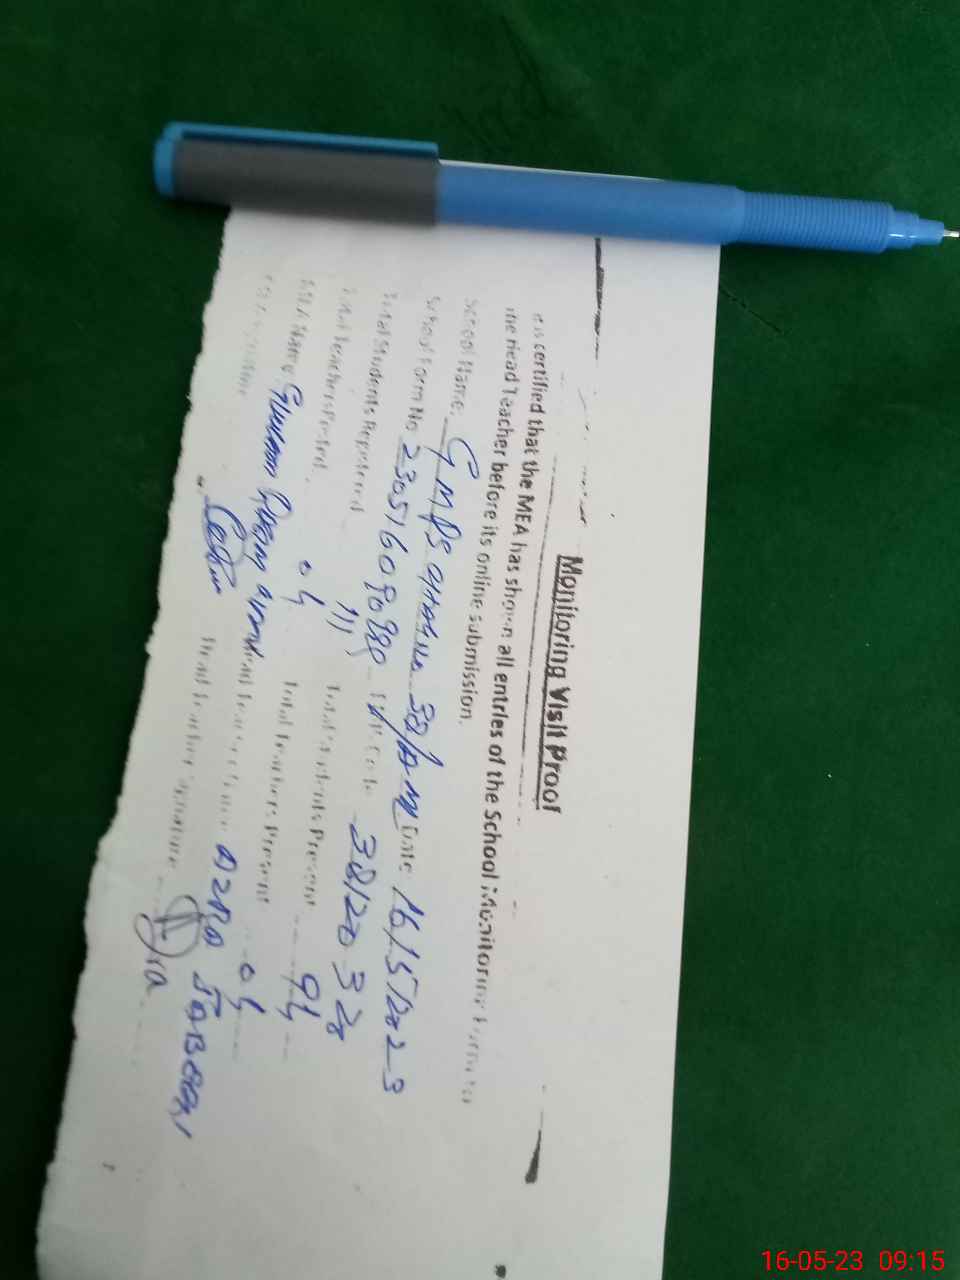 Monitoring Visit Proof
It is certified that the MEA has shown all entries of the School Monitoring Form to
the Head Teacher before its online submission.
School Name GMPS 98/ Date 16/5/2023
School Form No 2305160909 Code 38120 3
Total Students Registered 111 Total Students Present 94
Total Teachers Posted 04 Total Teachers Present 04
MEA Name Head Teacher Name AZRA
Head Teacher Signature
16-05-23 09:15